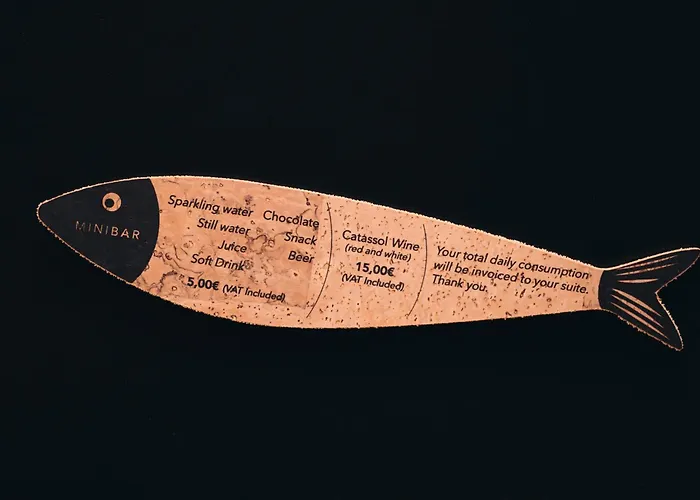 MINIBAR
Sparkling water
Still water
Juice
Soft Drink
Chocolate
Snack
Beer
5,00€ (VAT Included)
Catassol Wine
(red and white)
15,00€
(VAT Included)
Your total daily consumption
will be invoiced to your suite.
Thank you.